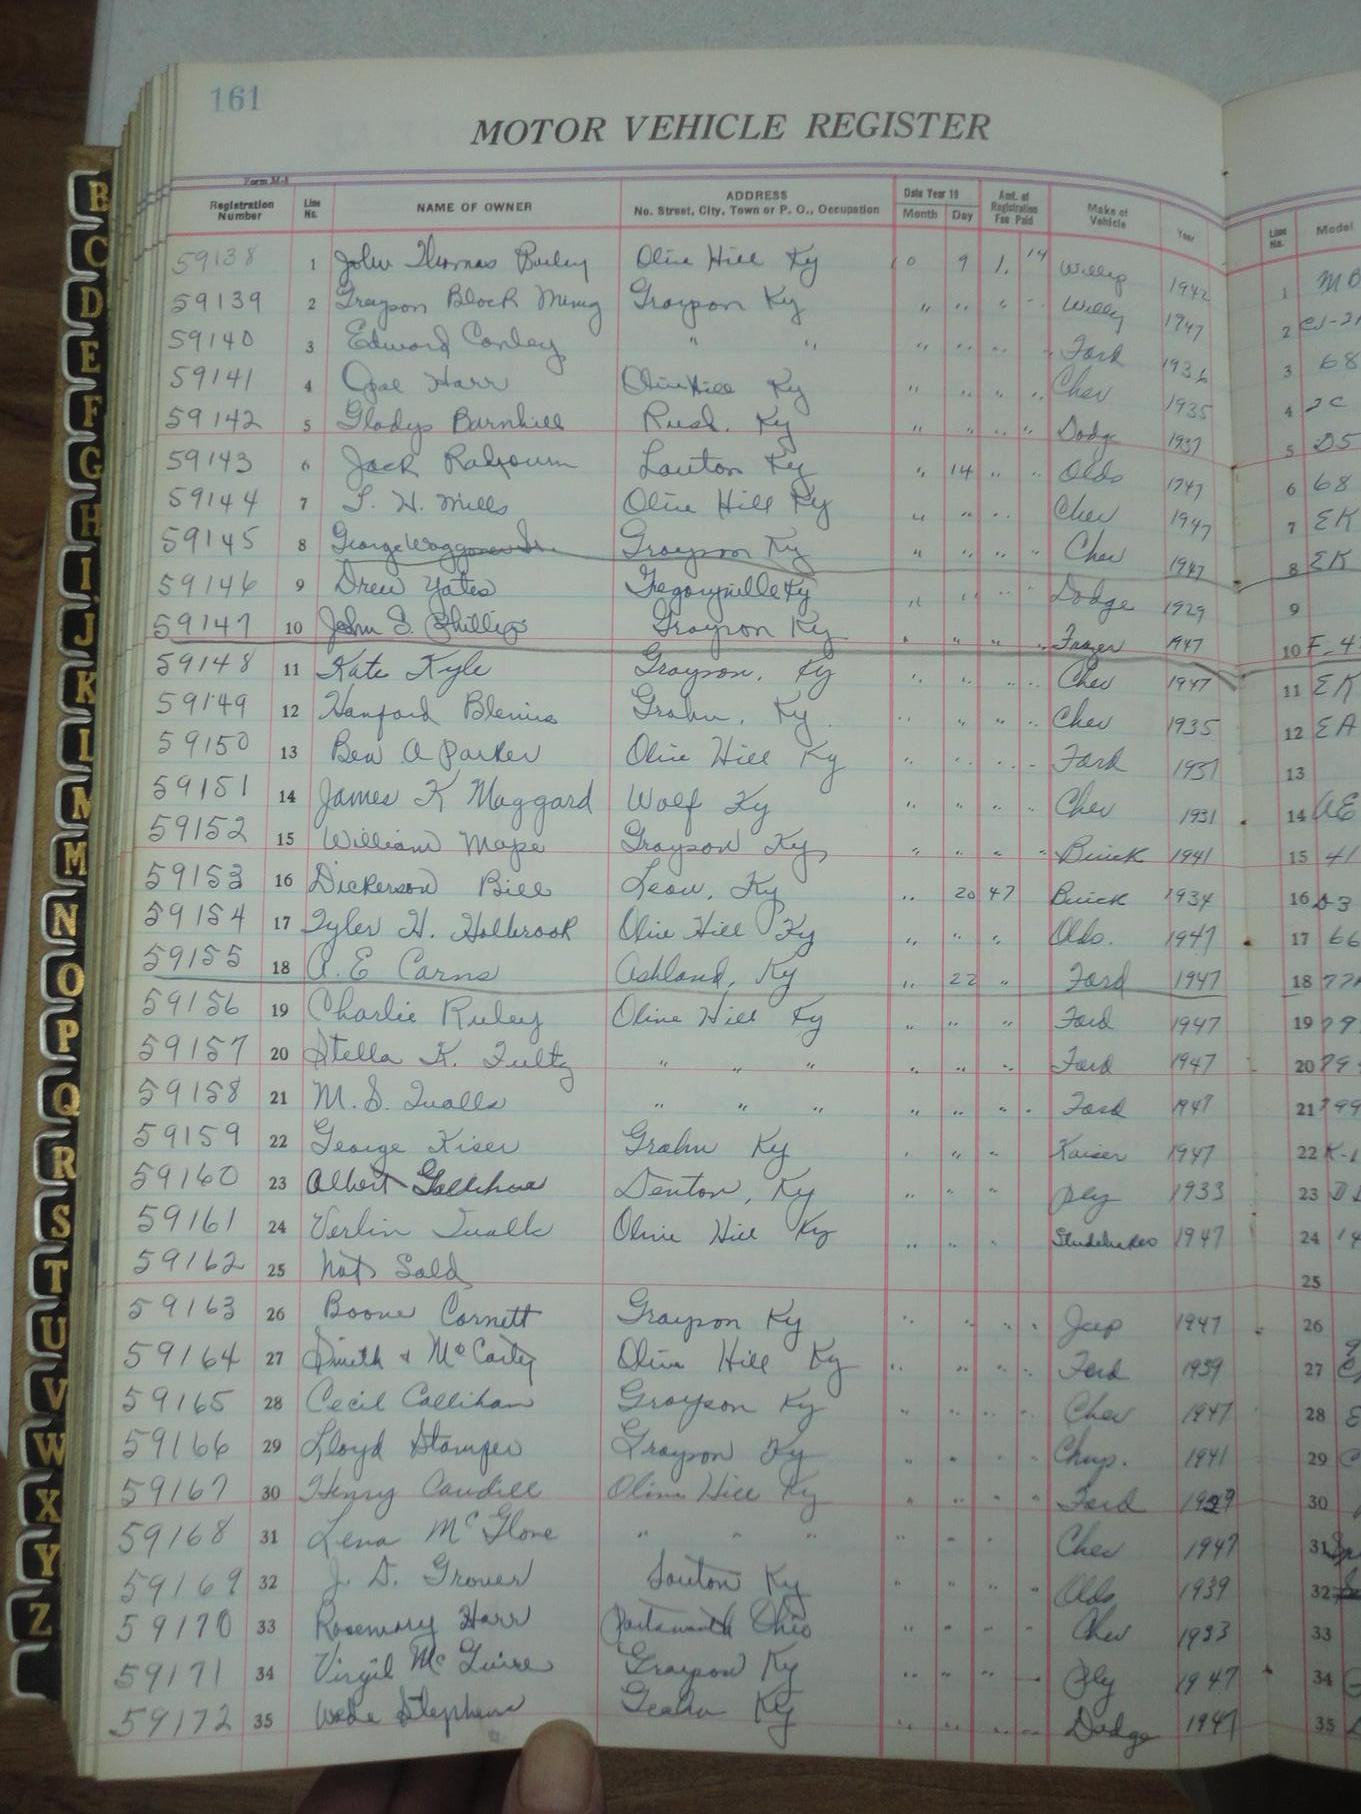 161
MOTOR VEHICLE REGISTER
Form M-1
Registration Number Line No. NAME OF OWNER ADDRESS No. Street, City, Town or P. O., Occupation Date Year 19 Month Day Amt. of Registration Fee Paid Make of Vehicle Year Line No. Model
59138 1 John Thomas Bailey Olive Hill Ky 10 9 1. 14 Willys 1942 1 MB
59139 2 Grayson Block Mining Grayson Ky " " " " Willy 1947 2 CJ-2A
59140 3 Edward Conley " " " " " " Ford 1936 3 68
59141 4 Opal Harr Olive Hill Ky " " " " Chev 1935 4
59142 5 Gladys Barnhill Rush. Ky " " " " Dodge 1937 5 D5
59143 6 Jack Lauton Ky " 14 " " Olds 1947 6 68
59144 7 T. H. Mills Olive Hill Ky " " " " Chev 1947 7 EK
59145 8 George Waggoner Sr. Grayson Ky " " " " Chev 1947 8 EK
59146 9 Drew Yates Gregoryville Ky " " " " Dodge 1929 9
59147 10 John S. Phillips Grayson Ky " " " " Frazer 1947 10 F-4
59148 11 Kate Kyle Grayson, Ky " " " " Chev 1947 11 EK
59149 12 Hanford Blevins Grahn, Ky. " " " " Chev 1935 12 EA
59150 13 Ben A Parker Olive Hill Ky " " " " Ford 1937 13
59151 14 James K Maggard Wolf Ky " " " " Chev 1931 14 AE
59152 15 William Mape Grayson Ky " " " " Buick 1941 15 41
59153 16 Dickerson Bill Leon, Ky " 20 47 Buick 1934 16
59154 17 Tyler H. Holbrook Olive Hill Ky " " " Olds. 1947 17 66
59155 18 A. E Carns Ashland, Ky " 22 " Ford 1947 18
59156 19 Charlie Ruley Olive Hill Ky " " " Ford 1947 19 79
59157 20 Stella K. Fultz " " " " " " Ford 1947 20 79
59158 21 M. S. Qualls " " " " " " Ford 1947 21 799
59159 22 George Kiser Grahn Ky " " " Kaiser 1947 22 K-1
59160 23 Albert Gollihue Denton, Ky " " " Ply 1933 23
59161 24 Verlin Qualls Olive Hill Ky " " " Studebaker 1947 24 14
59162 25 Not Sold 25
59163 26 Boone Cornett Grayson Ky " " " " Jeep 1947 26
59164 27 Smith & McCarty Olive Hill Ky " " " " Ford 1939 27
59165 28 Cecil Callihan Grayson Ky " " " " Chev 1947 28
59166 29 Lloyd Stamper Grayson Ky " " " " Chrys. 1941 29
59167 30 Henry Caudill Olive Hill Ky " " " " Ford 30
59168 31 Lena McGlone " " " " " " Chev 1947 31
59169 32 J. D. Grover Lauton Ky " " " " Olds 1939 32
59170 33 Rosemary Harr Portsmouth Ohio " " " " Chev 1933 33
59171 34 Virgil McGuire Grayson Ky " " " Ply 1947 34
59172 35 Wade Stephens Grahn Ky " " " " Dodge 1947 35
B
C
D
E
F
G
H
I
J
K
L
M
M
N
O
P
Q
R
S
T
U
V
W
X
Y
Z